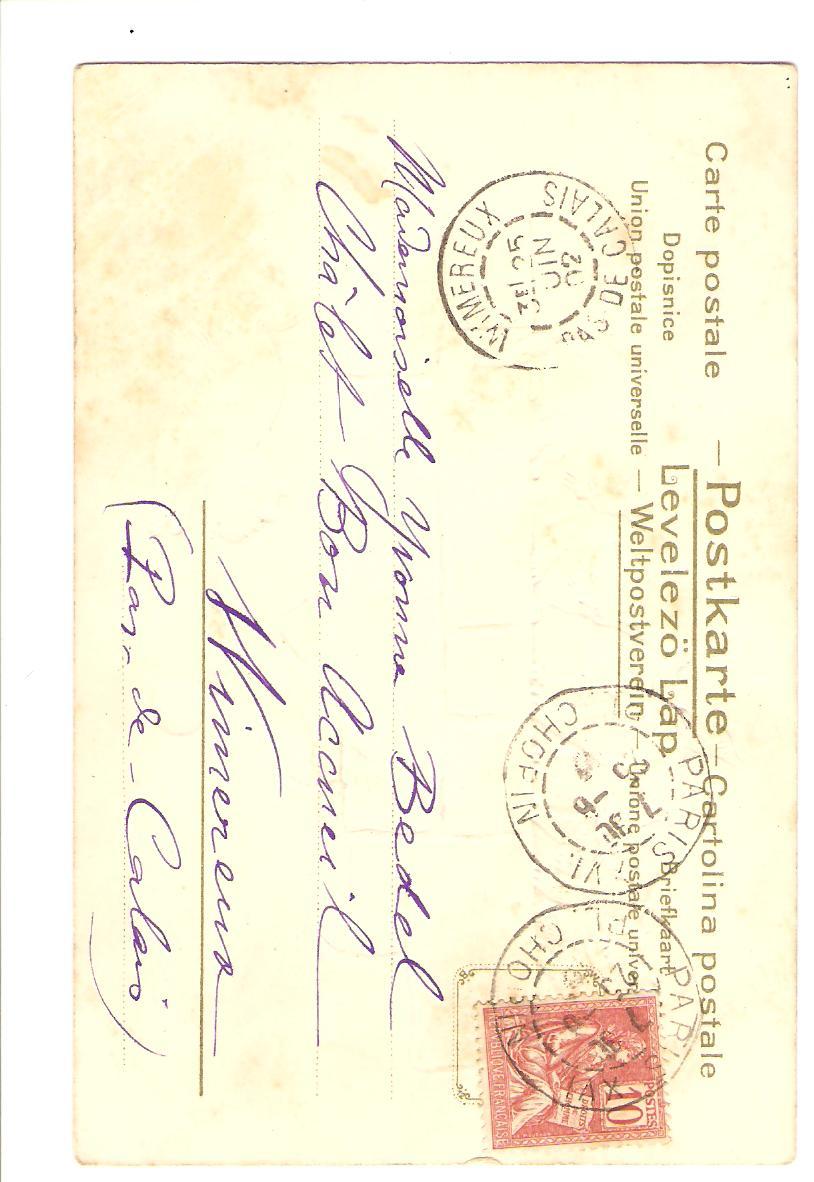 Carte postale — Postkarte — Cartolina postale
Dopisnice Levelezö Lap Briefkaart
Union postale universelle — Weltpostverein — Unione postale univer
WIMEREUX
25
JUIN
02
PAS DE CALAIS
PARIS
CHO
POSTES
10
RÉPUBLIQUE FRANÇAISE
Mademoiselle Yvonne Bedel
Châlet Bon Accueil
Wimereux
(Pas-de-Calais)